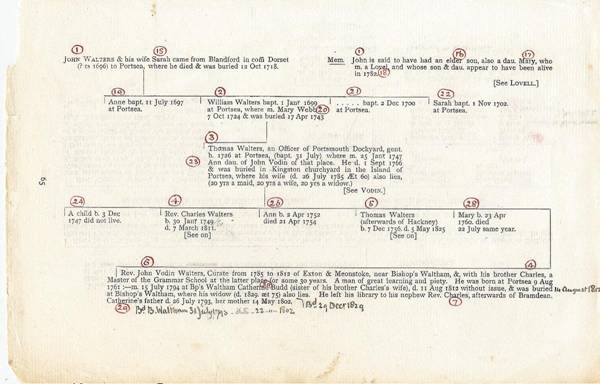 1 15
JOHN WALTERS & his wife Sarah came from Blandford in com̃ Dorset
(? to 1696) to Portsea, where he died & was buried 12 Oct 1718.
1 16 17
Mem. John is said to have had an elder son, also a dau. Mary, who
m. a Lovel, and whose son & dau. appear to have been alive
in 1782. 18
[See LOVELL.]
19 2 21 22
Anne bapt. 11 July 1697
at Portsea.
William Walters bapt. 1 Janr 1699
at Portsea, where m. Mary Webb 20
7 Oct 1724 & was buried 17 Apr 1743
. . . . . bapt. 2 Dec 1700
at Portsea.
Sarah bapt. 1 Nov 1702.
at Portsea.
3
Thomas Walters, an Officer of Portsmouth Dockyard, gent.
23 b. 1726 at Portsea, (bapt. 31 July) where m. 25 Janr 1747
Ann dau. of John Vodin of that place. He d. 1 Sept 1766
& was buried in Kingston churchyard in the Island of
Portsea, where his wife (d. 26 July 1785 Æt 60) also lies,
(20 yrs a maid, 20 yrs a wife, 20 yrs a widow.)
[See VODIN.]
65
24 4 26 5 28
A child b. 3 Dec
1747 did not live.
Rev. Charles Walters
b. 30 Janr 1749.
d. 7 March 1811.
[See on]
Ann b. 2 Apr 1752
died 21 Apr 1754
Thomas Walters
(afterwards of Hackney)
b. 7 Dec 1756. d. 5 May 1825
[See on]
Mary b. 23 Apr
1760. died
22 July same year.
6 4
Rev. John Vodin Walters, Curate from 1785 to 1812 of Exton & Meonstoke, near Bishop's Waltham, &, with his brother Charles, a
Master of the Grammar School at the latter place for some 30 years. A man of great learning and piety. He was born at Portsea 9 Aug
1761 :—m. 15 July 1794 at Bp's Waltham Catherine Budd (sister of his brother Charles's wife), d. 11 Aug 1812 without issue, & was buried 14 August 1812
at Bishop's Waltham, where his widow (d. 1829. æt 75) also lies. He left his library to his nephew Rev. Charles, afterwards of Bramdean.
Catherine's father d. 26 July 1793, her mother 14 May 1802. Bd 29 Dec 1829 7
29 Bd B. Waltham 31 July 1793 22 1802